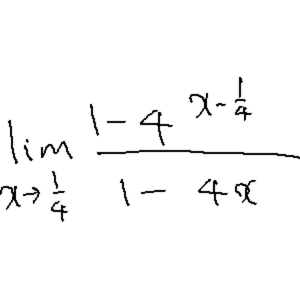 lim 1 - 4^{x - 1/4}
x→1/4 1 - 4x